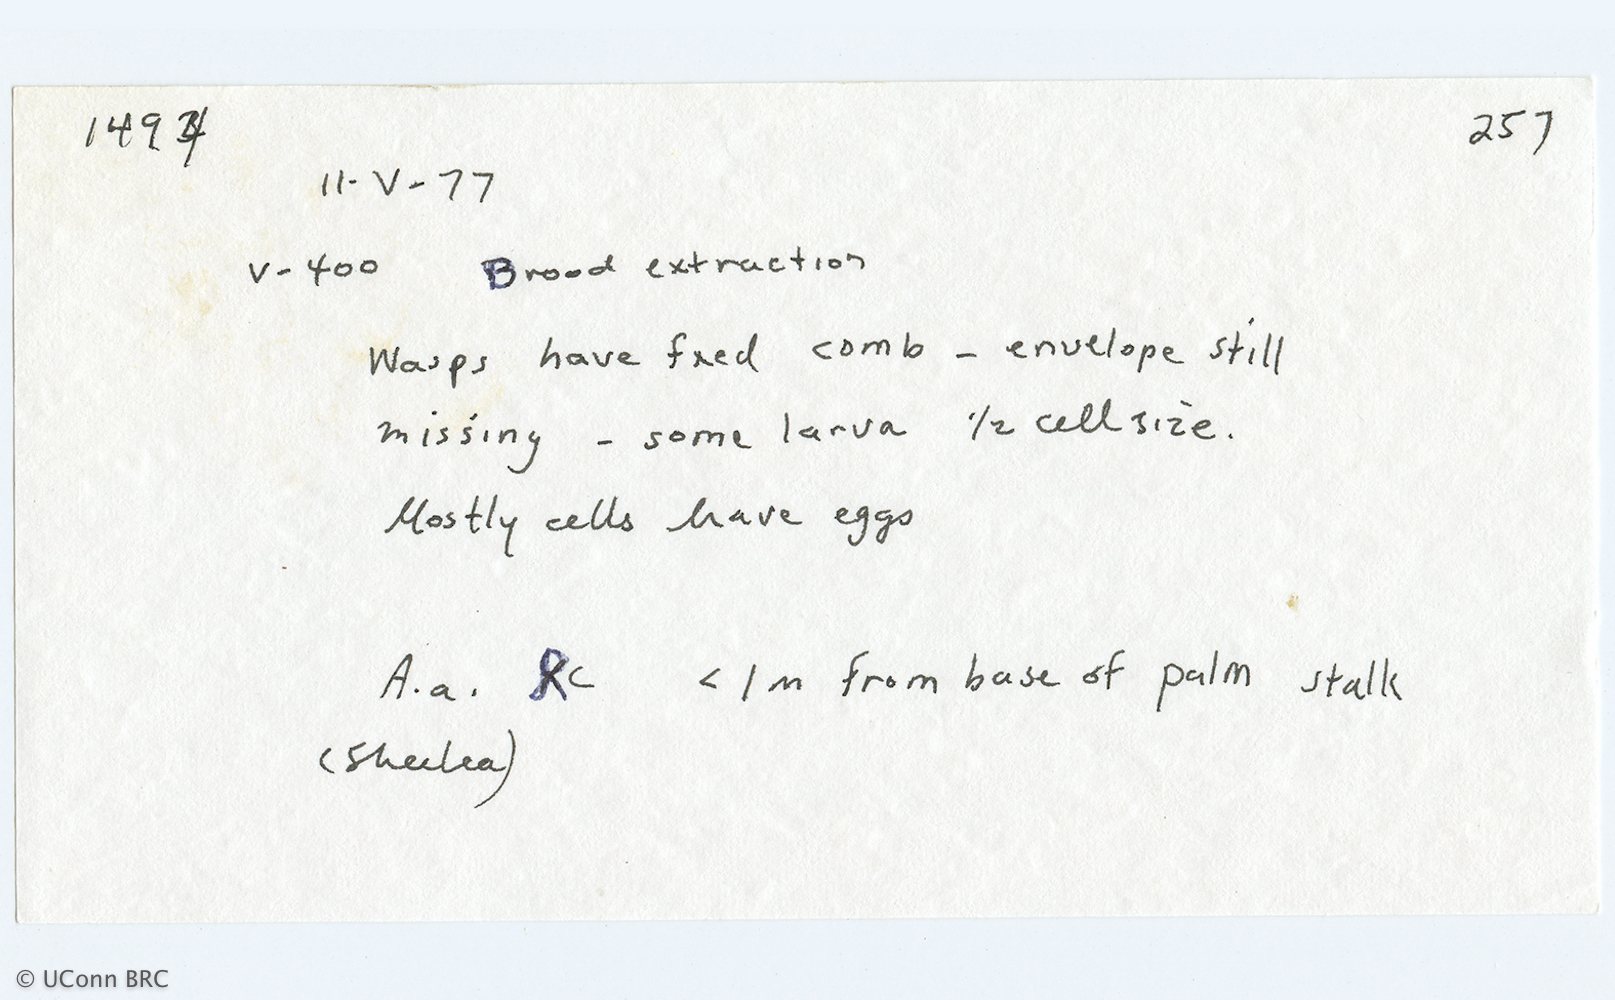 1494 257
11-V-77
V-400 Brood extraction
Wasps have fxed comb - envelope still
missing - some larva 1/2 cell size.
Mostly cells have eggs
A.a. < 1 m from base of palm stalk
(Sheelea)
© UConn BRC